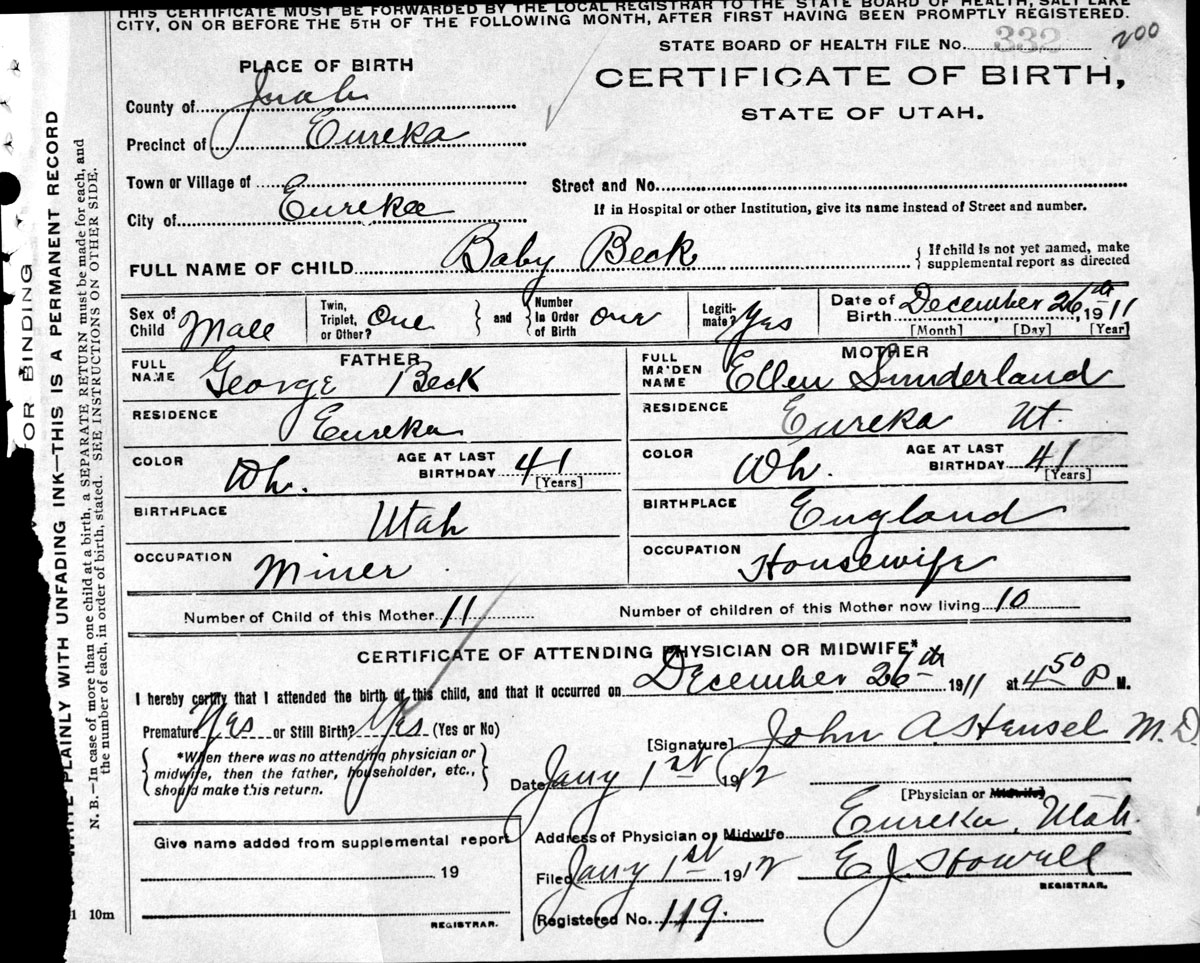 THIS CERTIFICATE MUST BE FORWARDED BY THE LOCAL REGISTRAR TO THE STATE BOARD OF HEALTH, SALT LAKE
CITY, ON OR BEFORE THE 5TH OF THE FOLLOWING MONTH, AFTER FIRST HAVING BEEN PROMPTLY REGISTERED.
STATE BOARD OF HEALTH FILE No. 332 200
PLACE OF BIRTH
CERTIFICATE OF BIRTH,
STATE OF UTAH.
County of Juab
Precinct of Eureka
Town or Village of
Street and No.
City of Eureka
If in Hospital or other Institution, give its name instead of Street and number.
FULL NAME OF CHILD Baby Beck { If child is not yet named, make
supplemental report as directed
Sex of Child Male
Twin, Triplet, or Other? One } and { Number in Order of Birth one
Legiti-mate? Yes
Date of Birth December 26th, 1911
[Month] [Day] [Year]
FATHER
FULL NAME George Beck
RESIDENCE Eureka
COLOR Wh. AGE AT LAST BIRTHDAY 41
[Years]
BIRTHPLACE Utah
OCCUPATION Miner
MOTHER
FULL MAIDEN NAME Ellen Sunderland
RESIDENCE Eureka Ut.
COLOR Wh. AGE AT LAST BIRTHDAY 41
[Years]
BIRTHPLACE England
OCCUPATION Housewife
Number of Child of this Mother 11 Number of children of this Mother now living 10
CERTIFICATE OF ATTENDING PHYSICIAN OR MIDWIFE*
I hereby certify that I attended the birth of this child, and that it occurred on December 26th 1911 at 4 50 P M.
Premature Yes or Still Birth? Yes (Yes or No)
*When there was no attending physician or
midwife, then the father, householder, etc.,
should make this return.
[Signature] John A Hensel M.D
Date Jany 1st 1912
[Physician or Midwife]
Address of Physician or Midwife Eureka, Utah.
Filed Jany 1st 1912 E J. Howell
REGISTRAR.
Registered No. 119.
Give name added from supplemental report
19
REGISTRAR.
1 10m
OR BINDING
PLAINLY WITH UNFADING INK—THIS IS A PERMANENT RECORD
N. B.—In case of more than one child at a birth, a SEPARATE RETURN must be made for each, and
the number of each, in order of birth, stated. SEE INSTRUCTIONS ON OTHER SIDE.